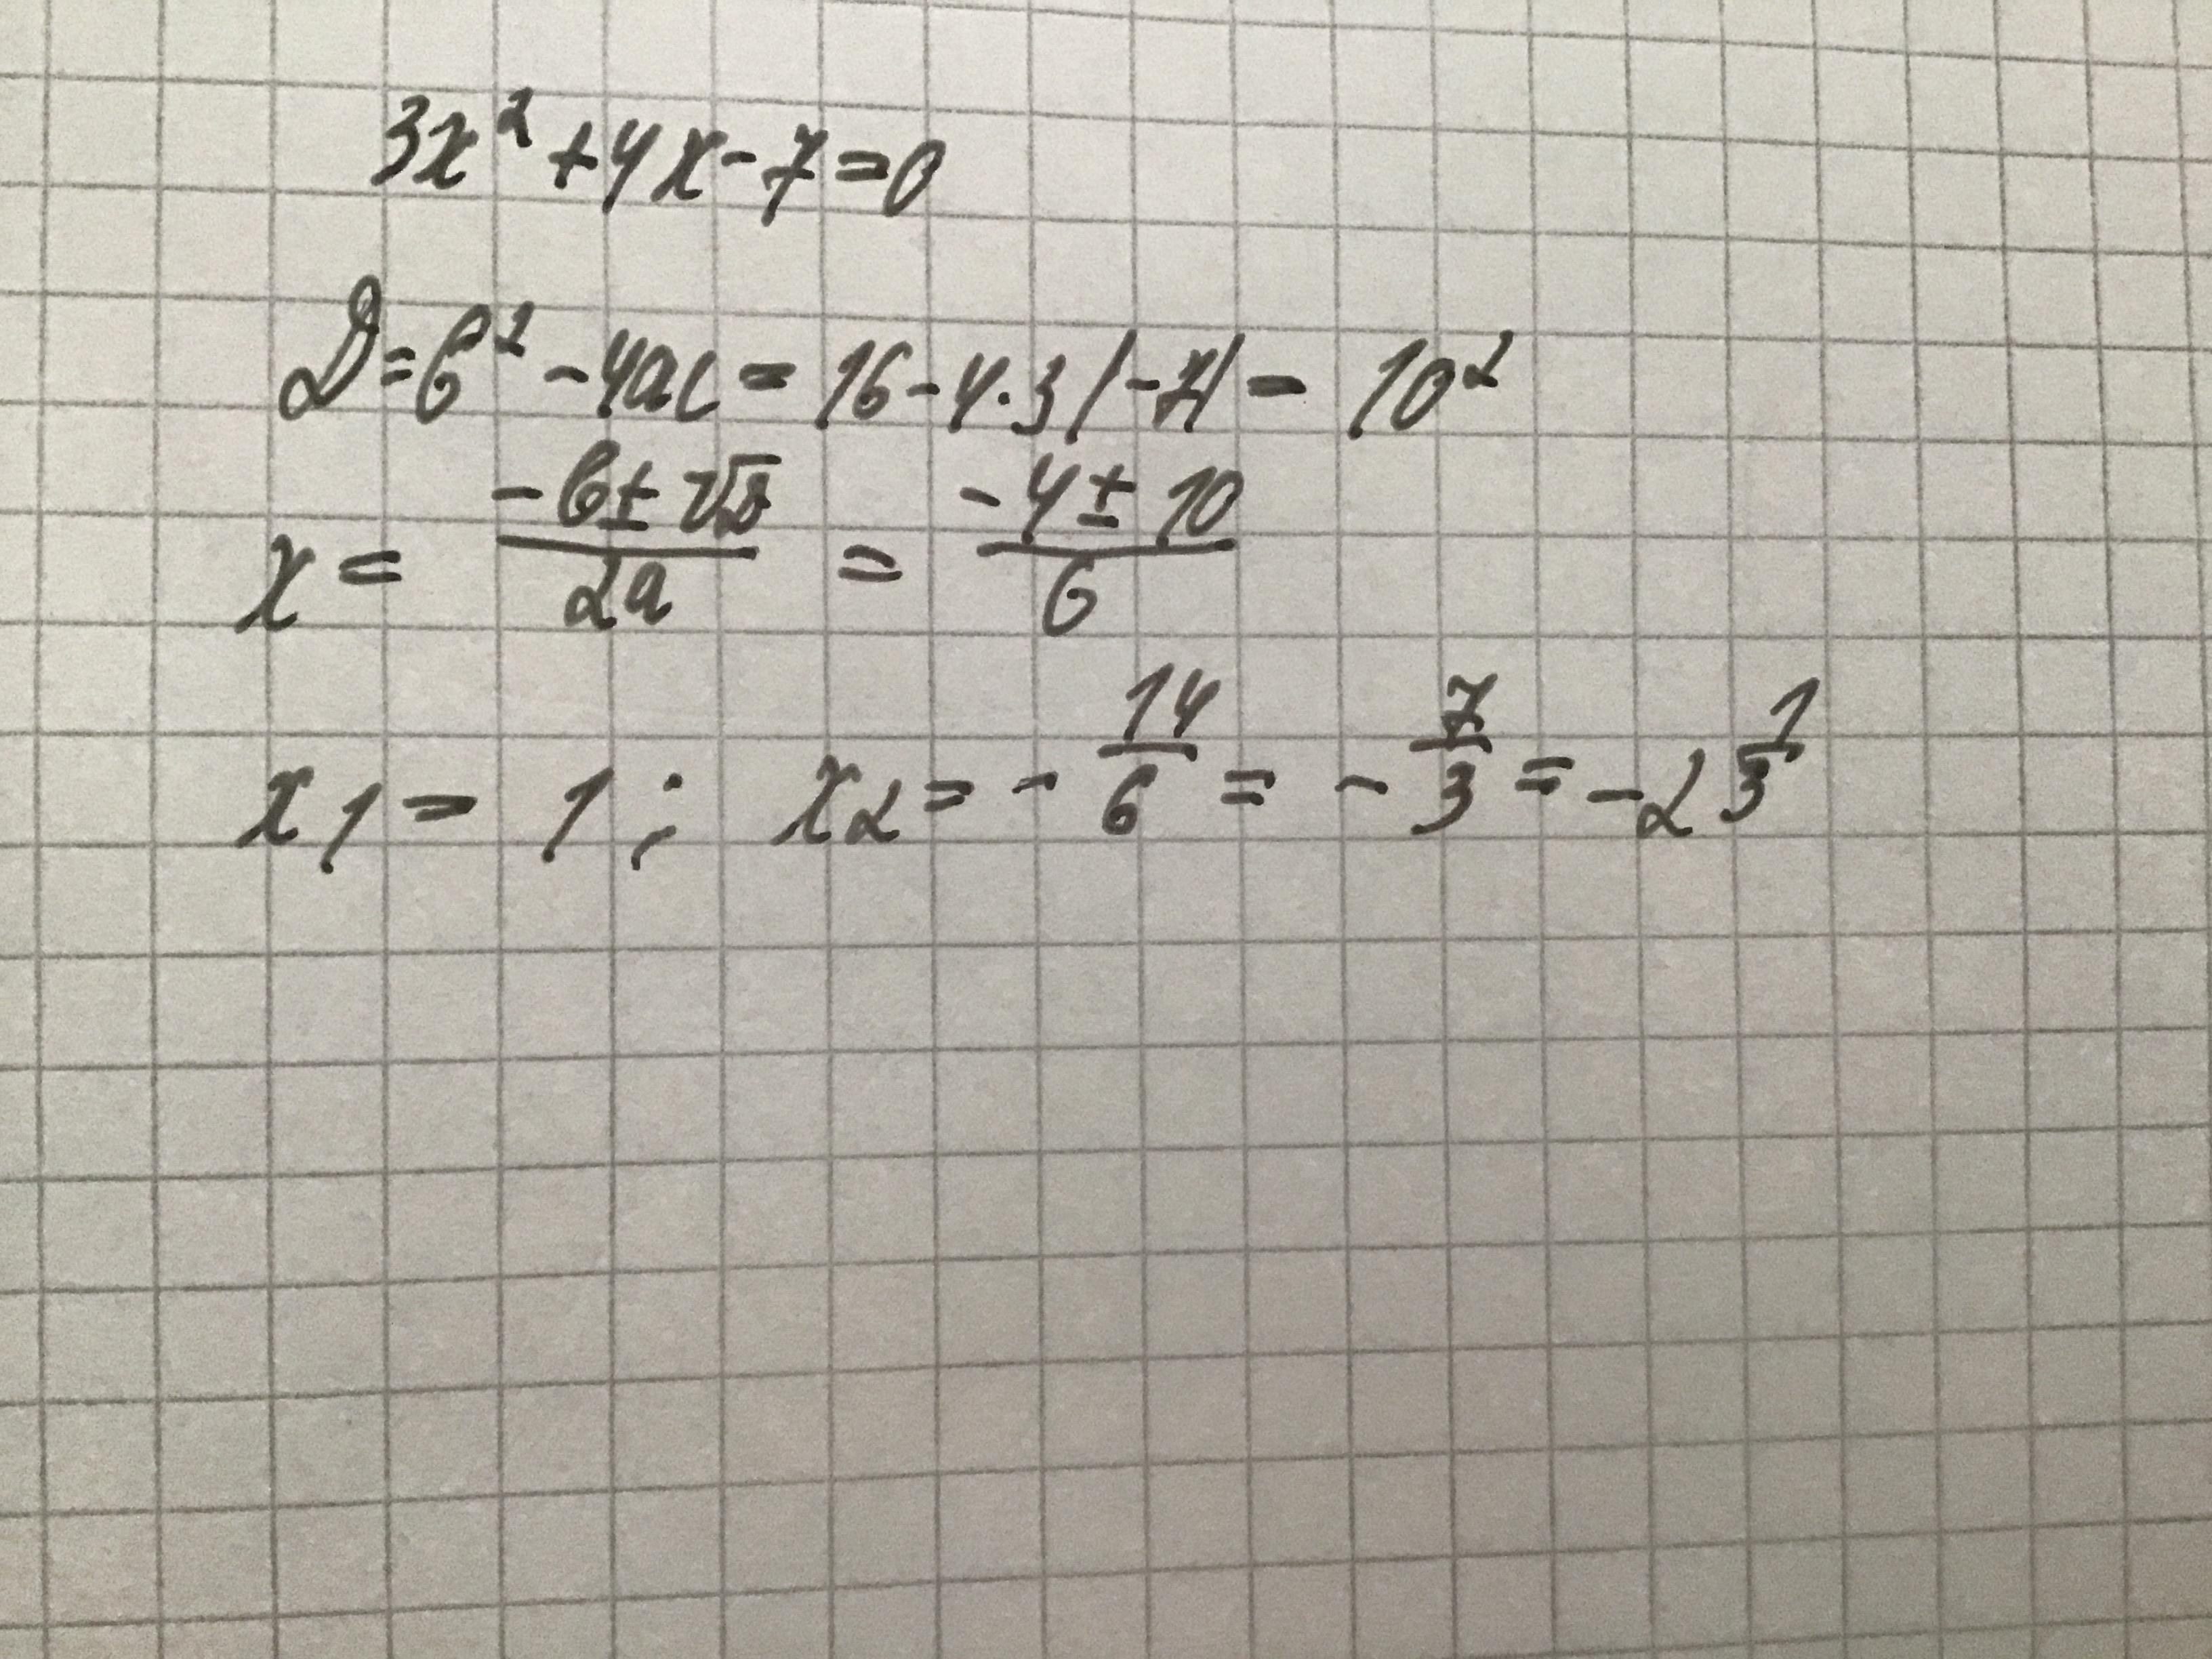 3x² + 4x - 7 = 0
D = b² - 4ac = 16 - 4·3(-7) = 10²
x = (-b ± √D)/(2a) = (-4 ± 10)/6
x1 = 1; x2 = -14/6 = -7/3 = -2 1/3